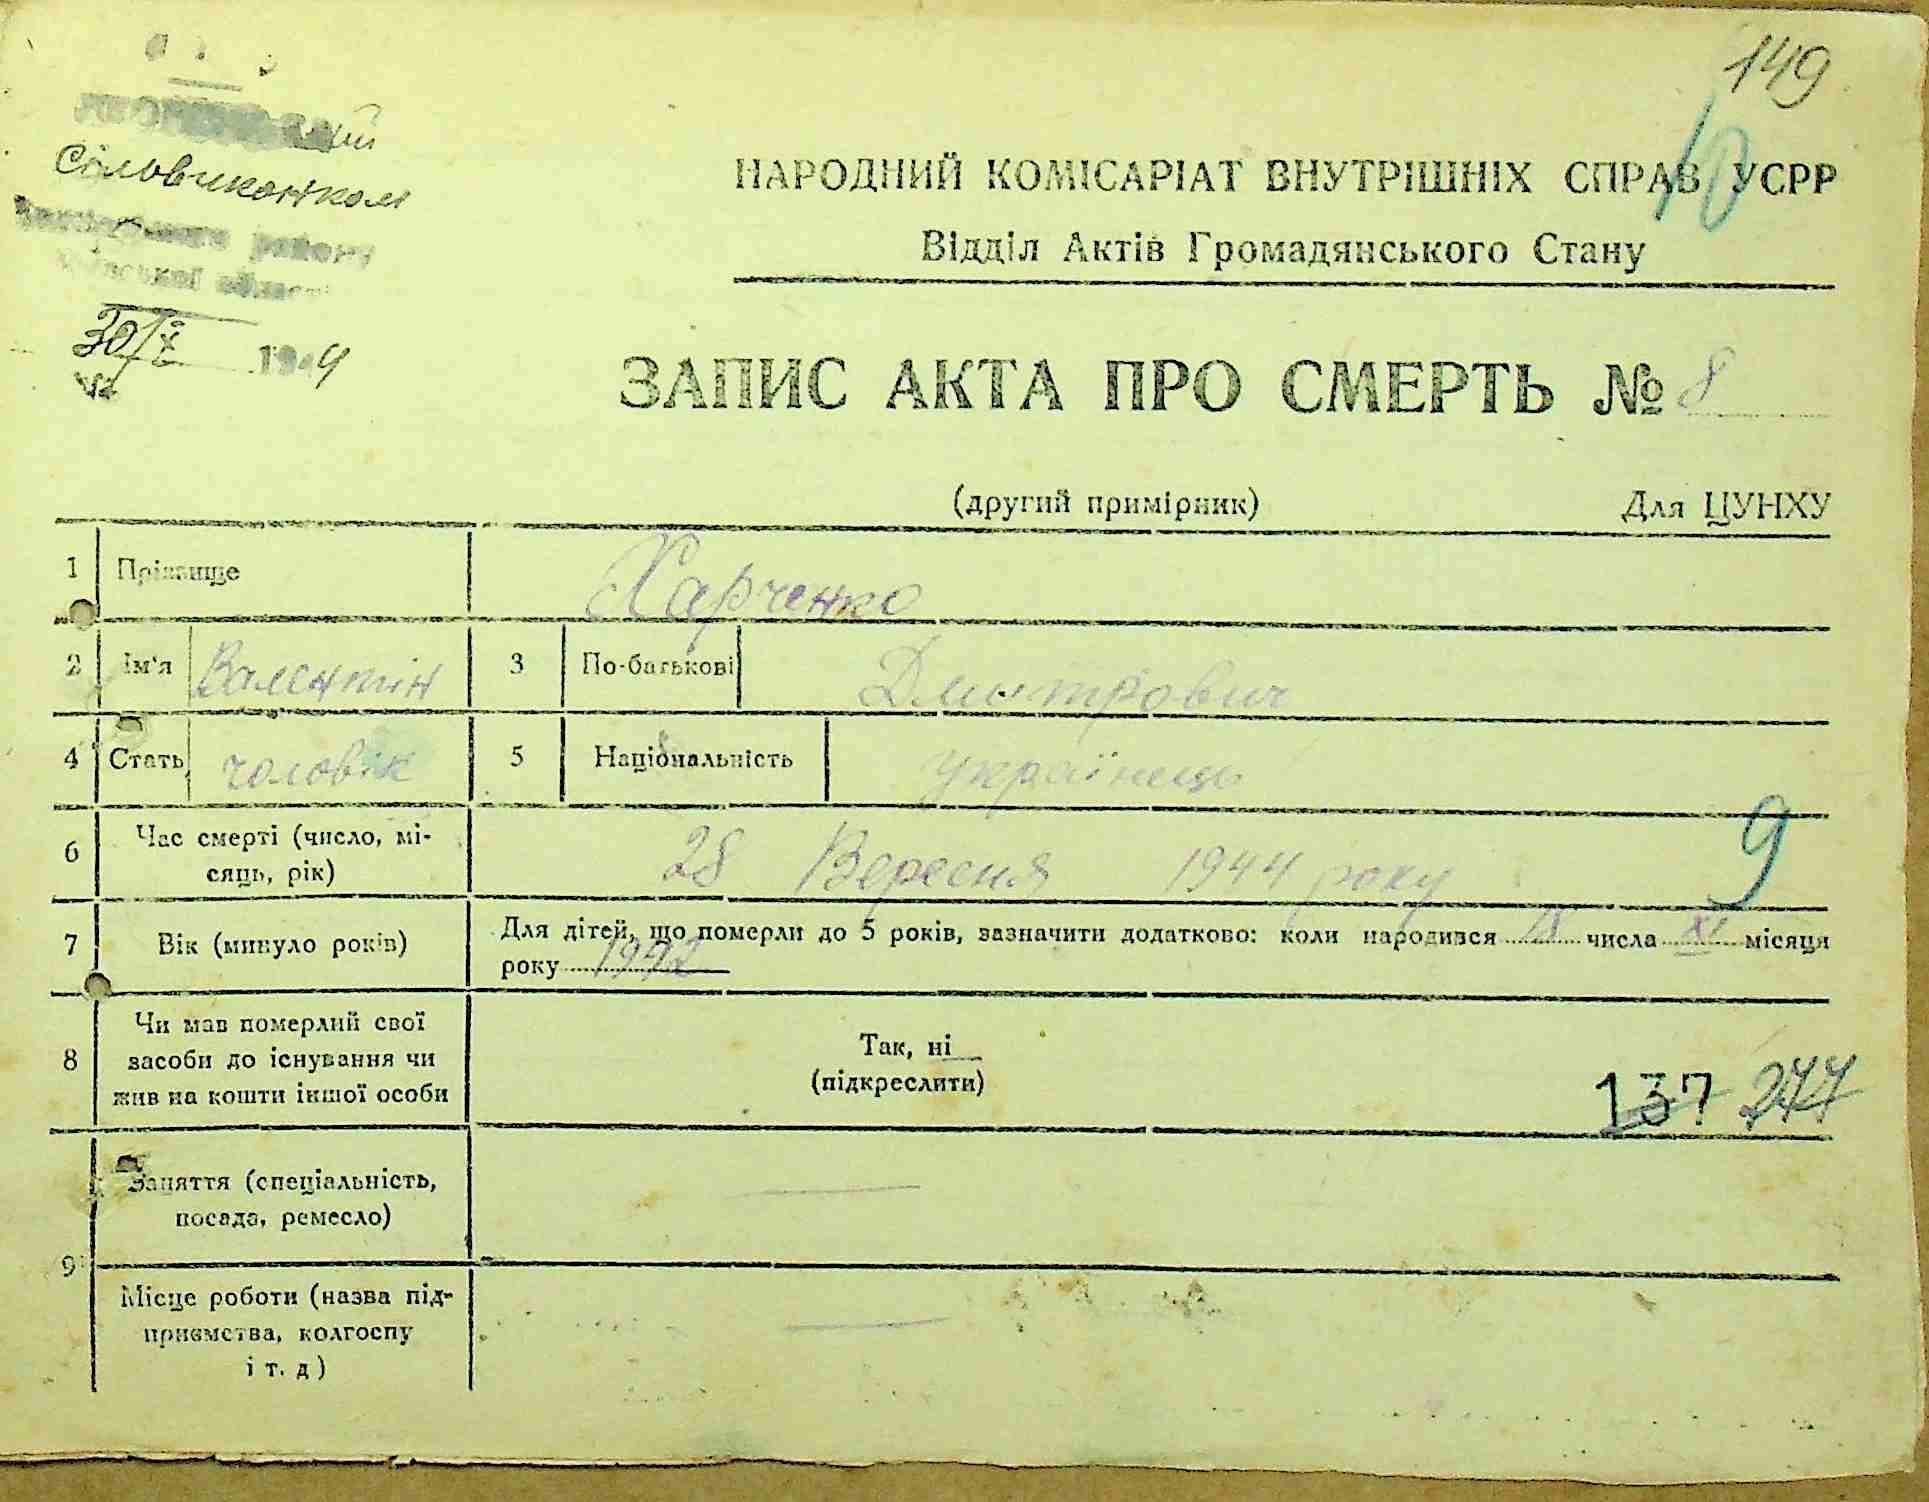 149
10
Сільвиконком
району
Київської області
30/X 1944
№
НАРОДНИЙ КОМІСАРІАТ ВНУТРІШНІХ СПРАВ УСРР
Відділ Актів Громадянського Стану
ЗАПИС АКТА ПРО СМЕРТЬ № 8
(другий примірник) Для ЦУНХУ
1 Прізвище Харченко
2 Ім'я Валентін 3 По-батькові Дмитрович
4 Стать чоловік 5 Національність українець
6 Час смерті (число, мі-
сяць, рік) 28 Вересня 1944 року
9
7 Вік (минуло років) Для дітей, що померли до 5 років, зазначити додатково: коли народився числа XI місяця
року 1942
8 Чи мав померлий свої
засоби до існування чи
жив на кошти іншої особи
Так, ні
(підкреслити)
137 277
9 Заняття (спеціальність,
посада, ремесло) —
Місце роботи (назва під-
приємства, колгоспу
і т. д) —